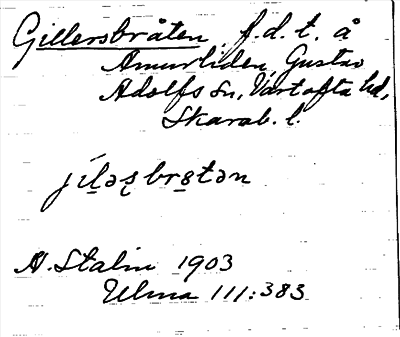 Gillersbråten f.d.t. å
Amurliden, Gustav
Adolfs sn, Vartofta hd,
Skarab. l.
jíḷəʂbrꞷtən
N. Stalin 1903
Ulma 111:383